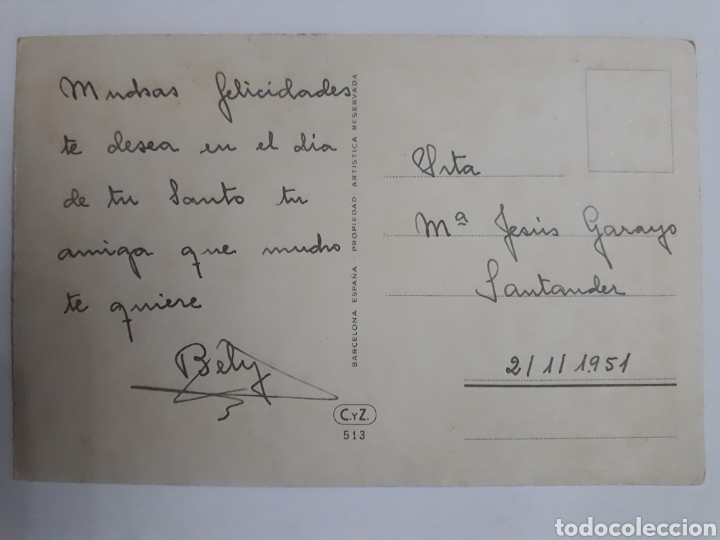 Muchas felicidades
te desea en el dia
de tu Santo tu
amiga que mucho
te quiere
Bely
BARCELONA ESPAÑA - PROPIEDAD ARTISTICA RESERVADA
C.YZ.
513
Srta
Mª Jesús Garayo
Santander
2/1/1.951
todocoleccion